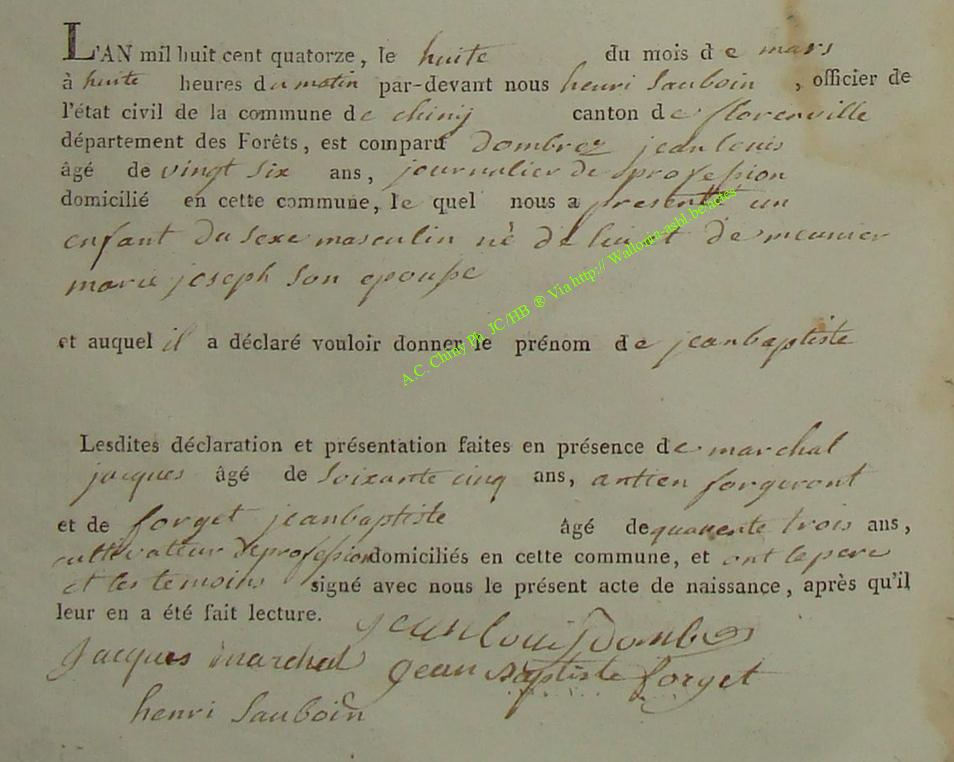 L'AN mil huit cent quatorze, le huite du mois de mars
à huite heures du matin par-devant nous henri Sauboin, officier de
l'état civil de la commune de chiny canton de florenville
département des Forêts, est comparu dombrez jean louis
âgé de vingt six ans, journalier de profession
domicilié en cette commune, le quel nous a presenté un
enfant du sexe masculin né de lui et de meunier
marie joseph son epouse
et auquel il a déclaré vouloir donner le prénom de jeanbaptiste
A.C. Chiny Ph. JC/HB ® Via http://Wallonia-asbl.be/actes
Lesdites déclaration et présentation faites en présence de marchal
jacques âgé de Soixante cinq ans, antien forgeront
et de forget jeanbaptiste âgé de quarente trois ans,
cultivateur de profession domiciliés en cette commune, et ont le pere
et les temoins signé avec nous le présent acte de naissance, après qu'il
leur en a été fait lecture.
jean louis dombrez
Jacques marchal jean baptiste forget
henri Sauboin